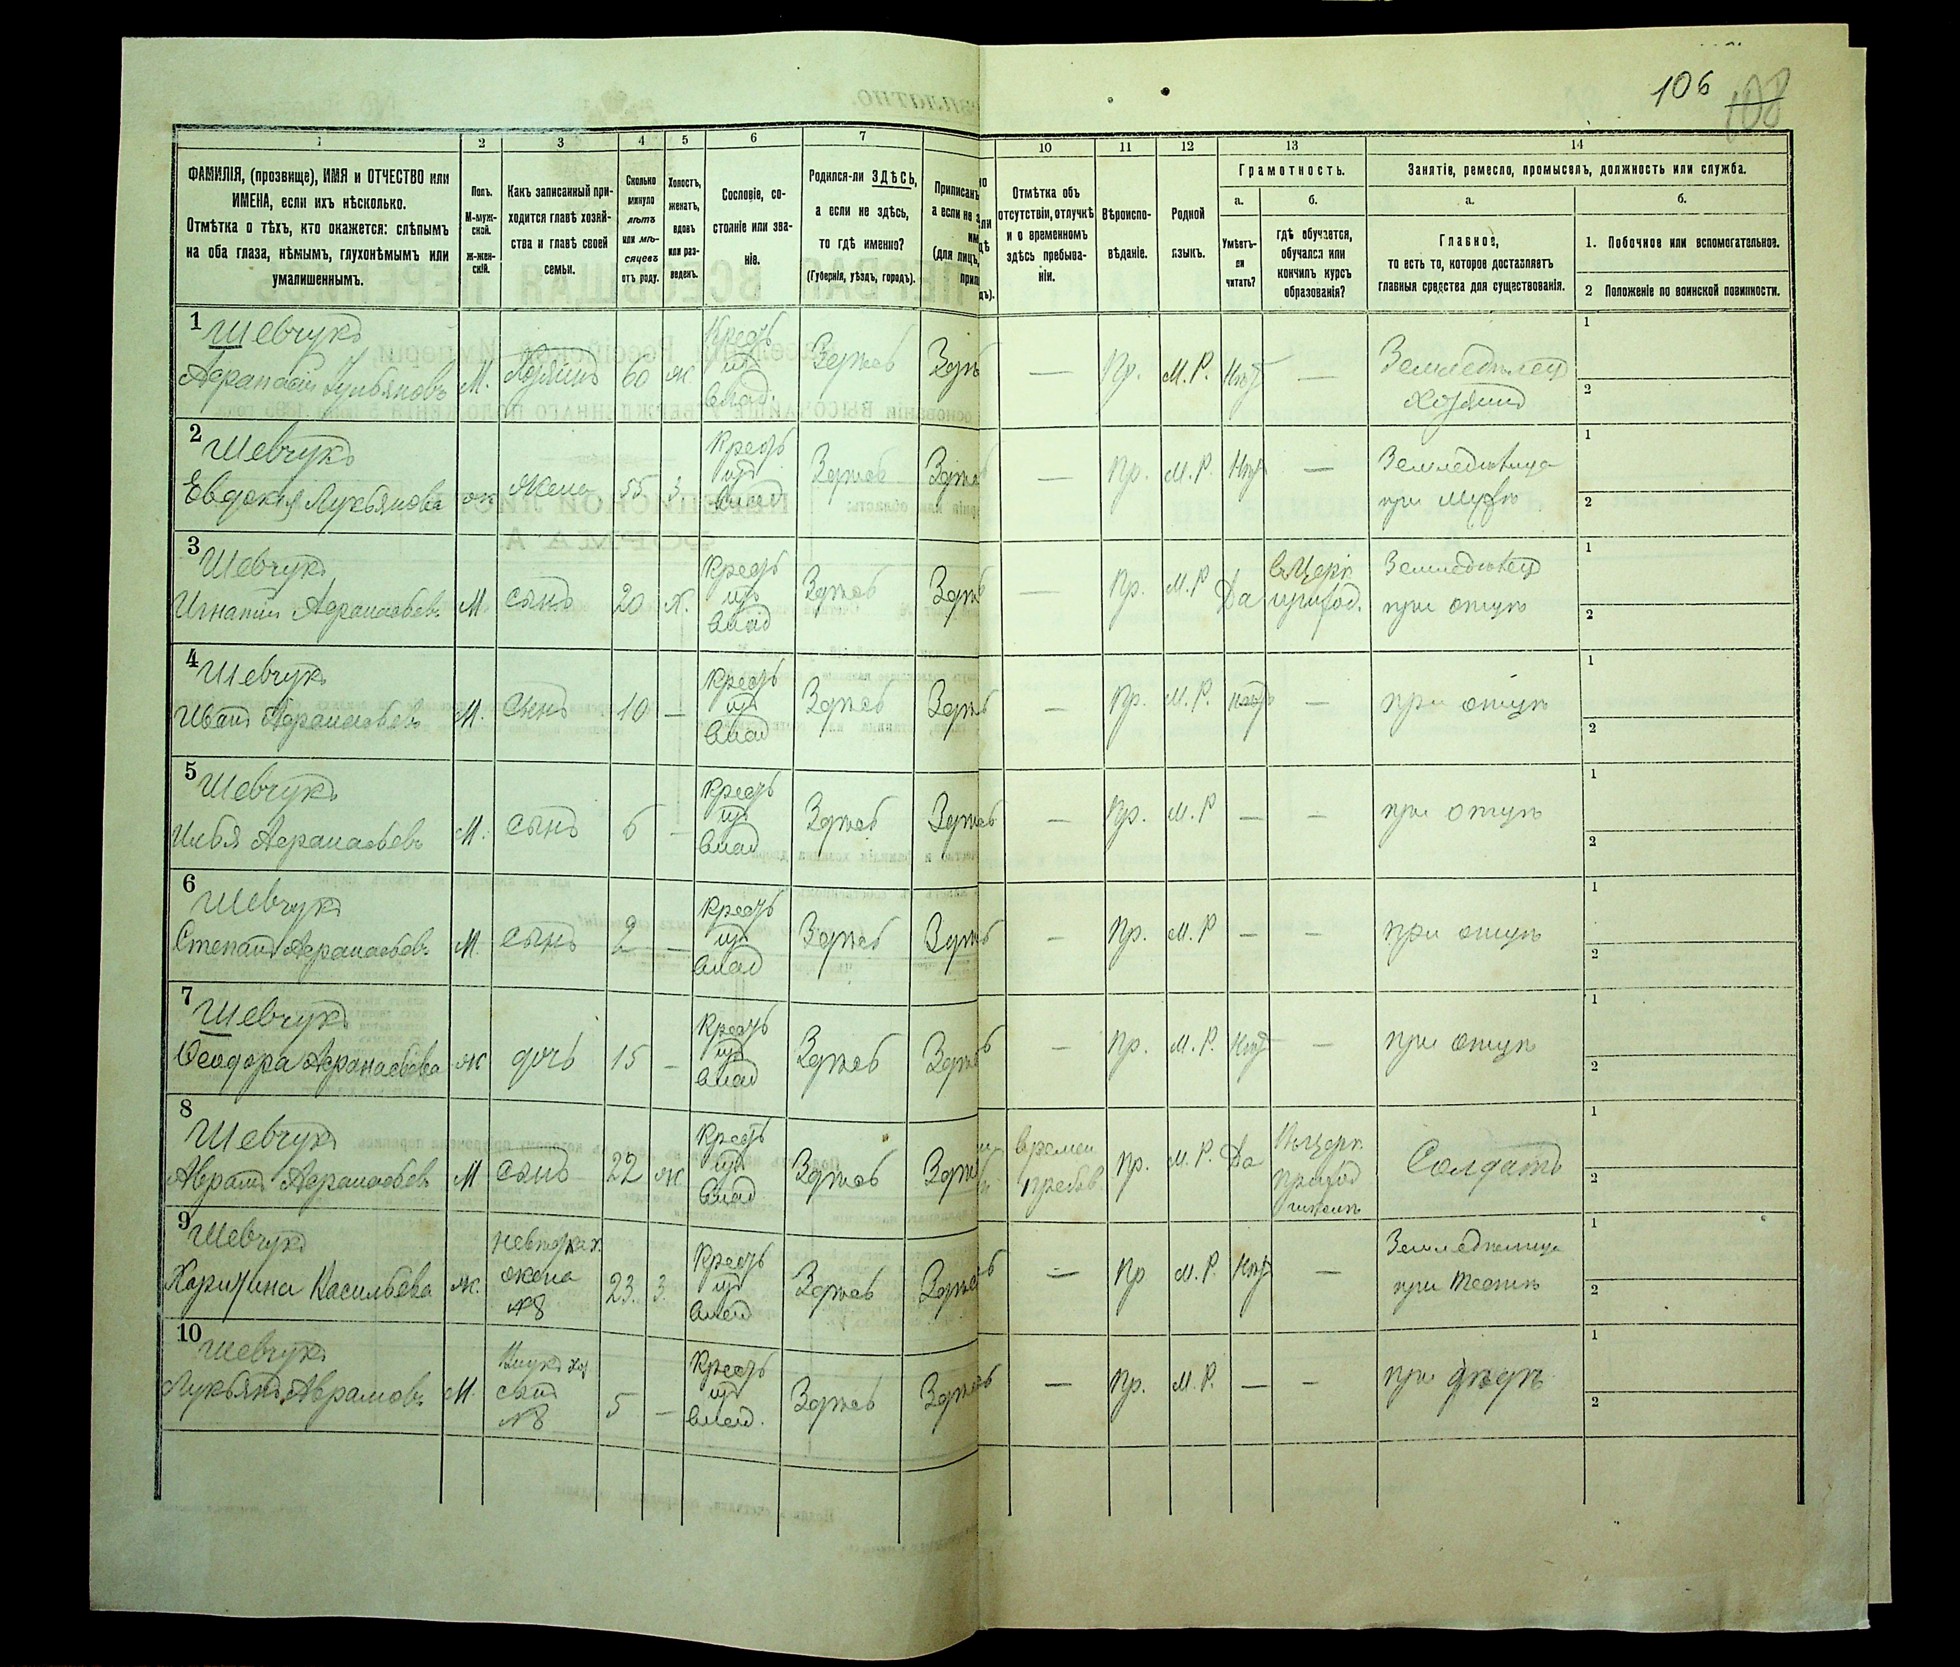 106
108
1
2
3
4
5
6
7
10
11
12
13
14
ФАМИЛІЯ, (прозвище), ИМЯ и ОТЧЕСТВО или
ИМЕНА, если ихъ нѣсколько.
Отмѣтка о тѣхъ, кто окажется: слѣпымъ
на оба глаза, нѣмымъ, глухонѣмымъ или
умалишеннымъ.
Полъ.
М-муж-
ской.
ж-жен-
скій.
Какъ записанный при-
ходится главѣ хозяй-
ства и главѣ своей
семьи.
Сколько
минуло
лѣтъ
или мѣ-
сяцевъ
отъ роду.
Холостъ,
женатъ,
вдовъ
или раз-
веденъ.
Сословіе, со-
стояніе или зва-
ніе.
Родился-ли ЗДѢСЬ,
а если не здѣсь,
то гдѣ именно?
(Губернія, уѣздъ, городъ).
Отмѣтка объ
отсутствіи, отлучкѣ
и о временномъ
здѣсь пребыва-
ніи.
Вѣроиспо-
вѣданіе.
Родной
языкъ.
Грамотность.
а.
Умѣетъ-
ли
читать?
б.
гдѣ обучается,
обучался или
кончилъ курсъ
образованія?
Занятіе, ремесло, промыселъ, должность или служба.
а.
Главное,
то есть то, которое доставляетъ
главныя средства для существованія.
б.
1. Побочное или вспомогательное.
2 Положеніе по воинской повинности.
1 Шевчукъ
Афанасій Лукьяновъ М. Хозяинъ 60 ж Крест. изъ влад. Здѣсь Здѣсь — Пр. М. Р. Нѣтъ — Земледѣлецъ
хозяинъ
1
2
2 Шевчукъ
Евдокія Лукьянова ж жена 55 з. Крест. изъ влад Здѣсь Здѣсь — Пр. М. Р. Нѣтъ — Земледѣлица
при мужѣ
1
2
3 Шевчукъ
Игнатій Афанасьевъ М сынъ 20 х. Крест. изъ влад Здѣсь Здѣсь — Пр. М. Р Да въ Церк. приход. Земледѣлецъ
при отцѣ
1
2
4 Шевчукъ
Иванъ Афанасьевъ М. Сынъ 10 — Крест. изъ влад Здѣсь Здѣсь — Пр. М. Р. нѣтъ — при отцѣ
1
2
5 Шевчукъ
Илья Афанасьевъ М. сынъ 6 — Крест. изъ влад Здѣсь Здѣсь — Пр. М. Р — — при отцѣ
1
2
6 Шевчукъ
Степанъ Афанасьевъ М. сынъ 2 — Крест. изъ влад Здѣсь Здѣсь — Пр. М. Р — — при отцѣ
1
2
7 Шевчукъ
Ѳеодора Афанасьева ж дочь 15 — Крест. изъ влад Здѣсь Здѣсь — Пр. М. Р. Нѣтъ — при отцѣ
1
2
8 Шевчукъ
Аврамъ Афанасьевъ М сынъ 22 ж Крест. изъ влад Здѣсь Здѣсь времен пребыв. Пр. М. Р. Да Въ Церк. приход Солдатъ
1
2
9 Шевчукъ
Харитина Васильева ж. невѣстка х. жена №8 23. з. Крест. изъ влад Здѣсь Здѣсь — Пр М. Р. Нѣтъ — Земледѣлица
при тестѣ
1
2
10 Шевчукъ
Лукьянъ Аврамовъ М. Внукъ хоз сынъ №8 5 — Крест. изъ влад. Здѣсь Здѣсь — Пр. М. Р. — — при дѣдѣ
1
2